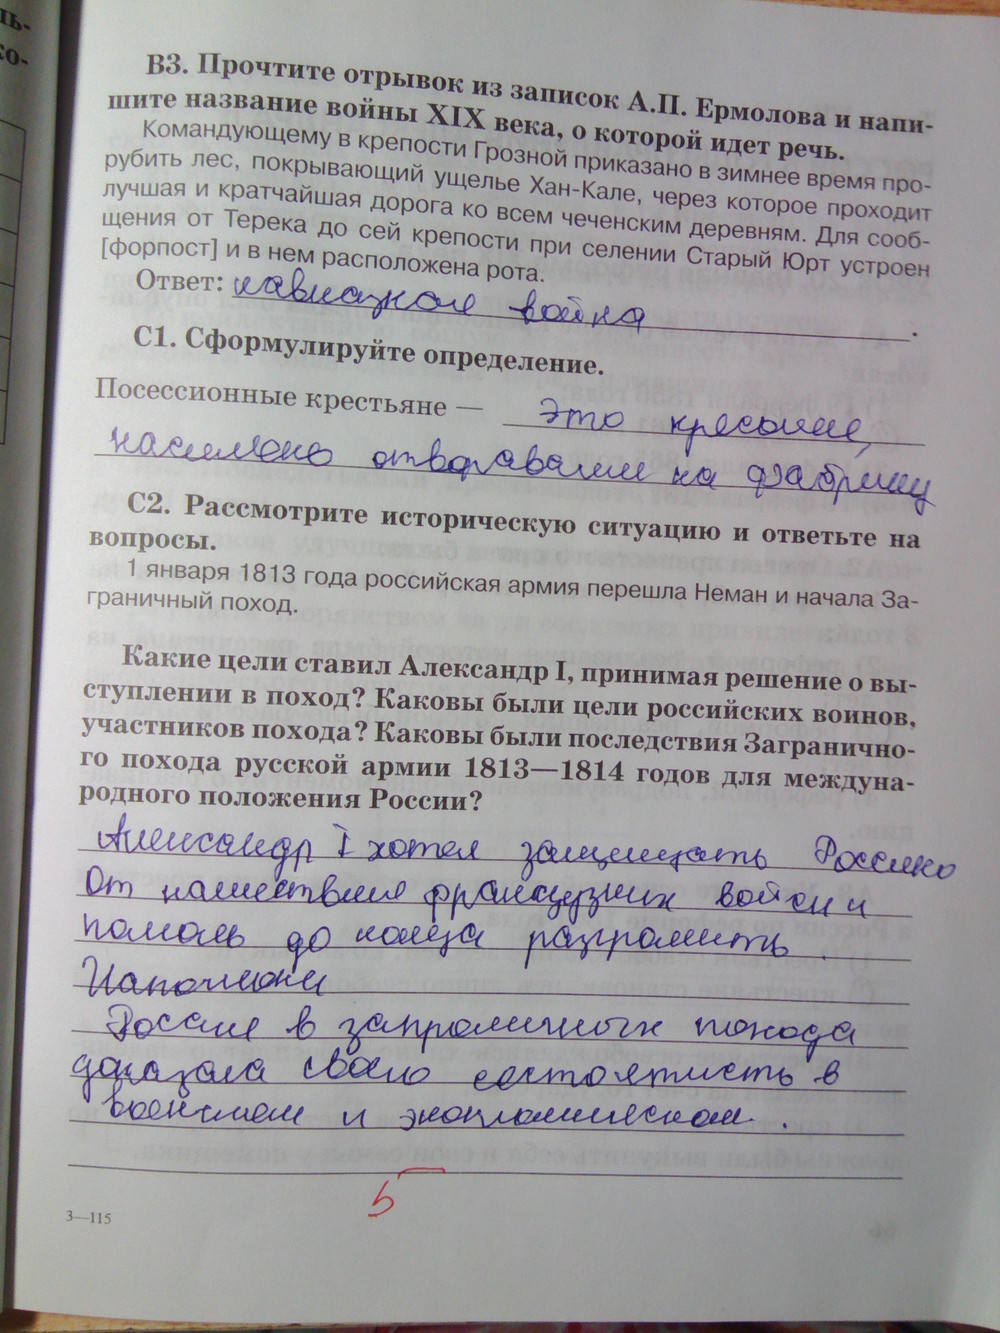 ль-
ко-
В3. Прочтите отрывок из записок А.П. Ермолова и напи-
шите название войны XIX века, о которой идет речь.
Командующему в крепости Грозной приказано в зимнее время про-
рубить лес, покрывающий ущелье Хан-Кале, через которое проходит
лучшая и кратчайшая дорога ко всем чеченским деревням. Для сооб-
щения от Терека до сей крепости при селении Старый Юрт устроен
[форпост] и в нем расположена рота.
Ответ: кавказкая война.
С1. Сформулируйте определение.
Посессионные крестьяне — это
отворавали на фабрику
С2. Рассмотрите историческую ситуацию и ответьте на
вопросы.
1 января 1813 года российская армия перешла Неман и начала За-
граничный поход.
Какие цели ставил Александр I, принимая решение о вы-
ступлении в поход? Каковы были цели российских воинов,
участников похода? Каковы были последствия Загранично-
го похода русской армии 1813—1814 годов для междуна-
родного положения России?
Александр I хотел защищать Россию
от нашествия французких войск и
помочь до конца разгромить
Наполиони
Россия в похода
доказала свою в
военном и
5
3—115